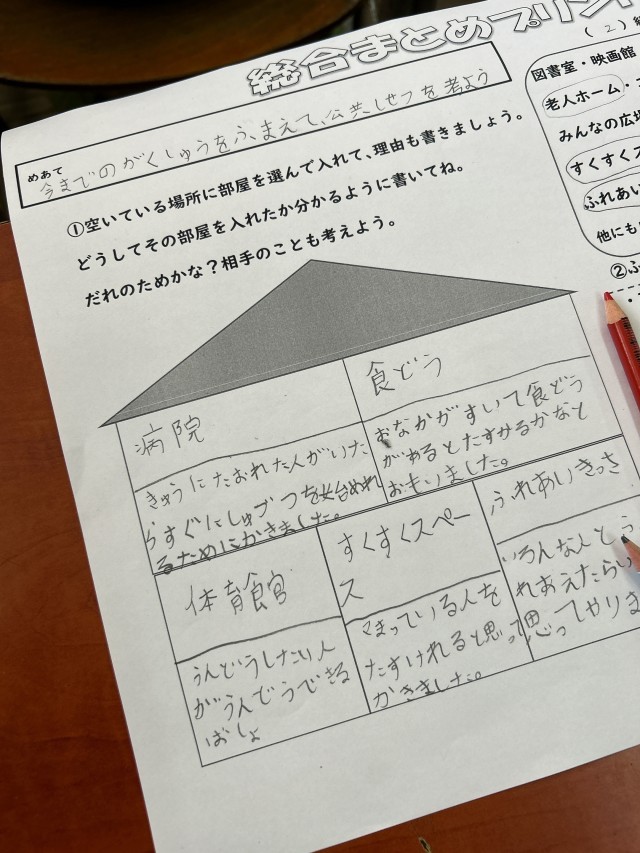 総合まとめプリント
(2)
めあて
今までのがくしゅうをふまえて、公共しせつを考よう
①空いている場所に部屋を選んで入れて、理由も書きましょう。
どうしてその部屋を入れたか分かるように書いてね。
だれのためかな？相手のことも考えよう。
図書室・映画館
老人ホーム・
みんなの広場
すくすくス
ふれあい
他にも
②ふ
病院
きゅうにたおれた人がいた
らすぐにしゅづつを始めれ
るためにかきました。
食どう
おなかがすいて食どう
があるとたすかるかなと
おもいました。
体育館
うんどうしたい人
がうんどうできる
ばしょ
すくすくスペー
ス
こまっている人を
たすけれると思って
かきました。
ふれあいきっさ
いろんな人とふ
れあえたらい
思ってやりま